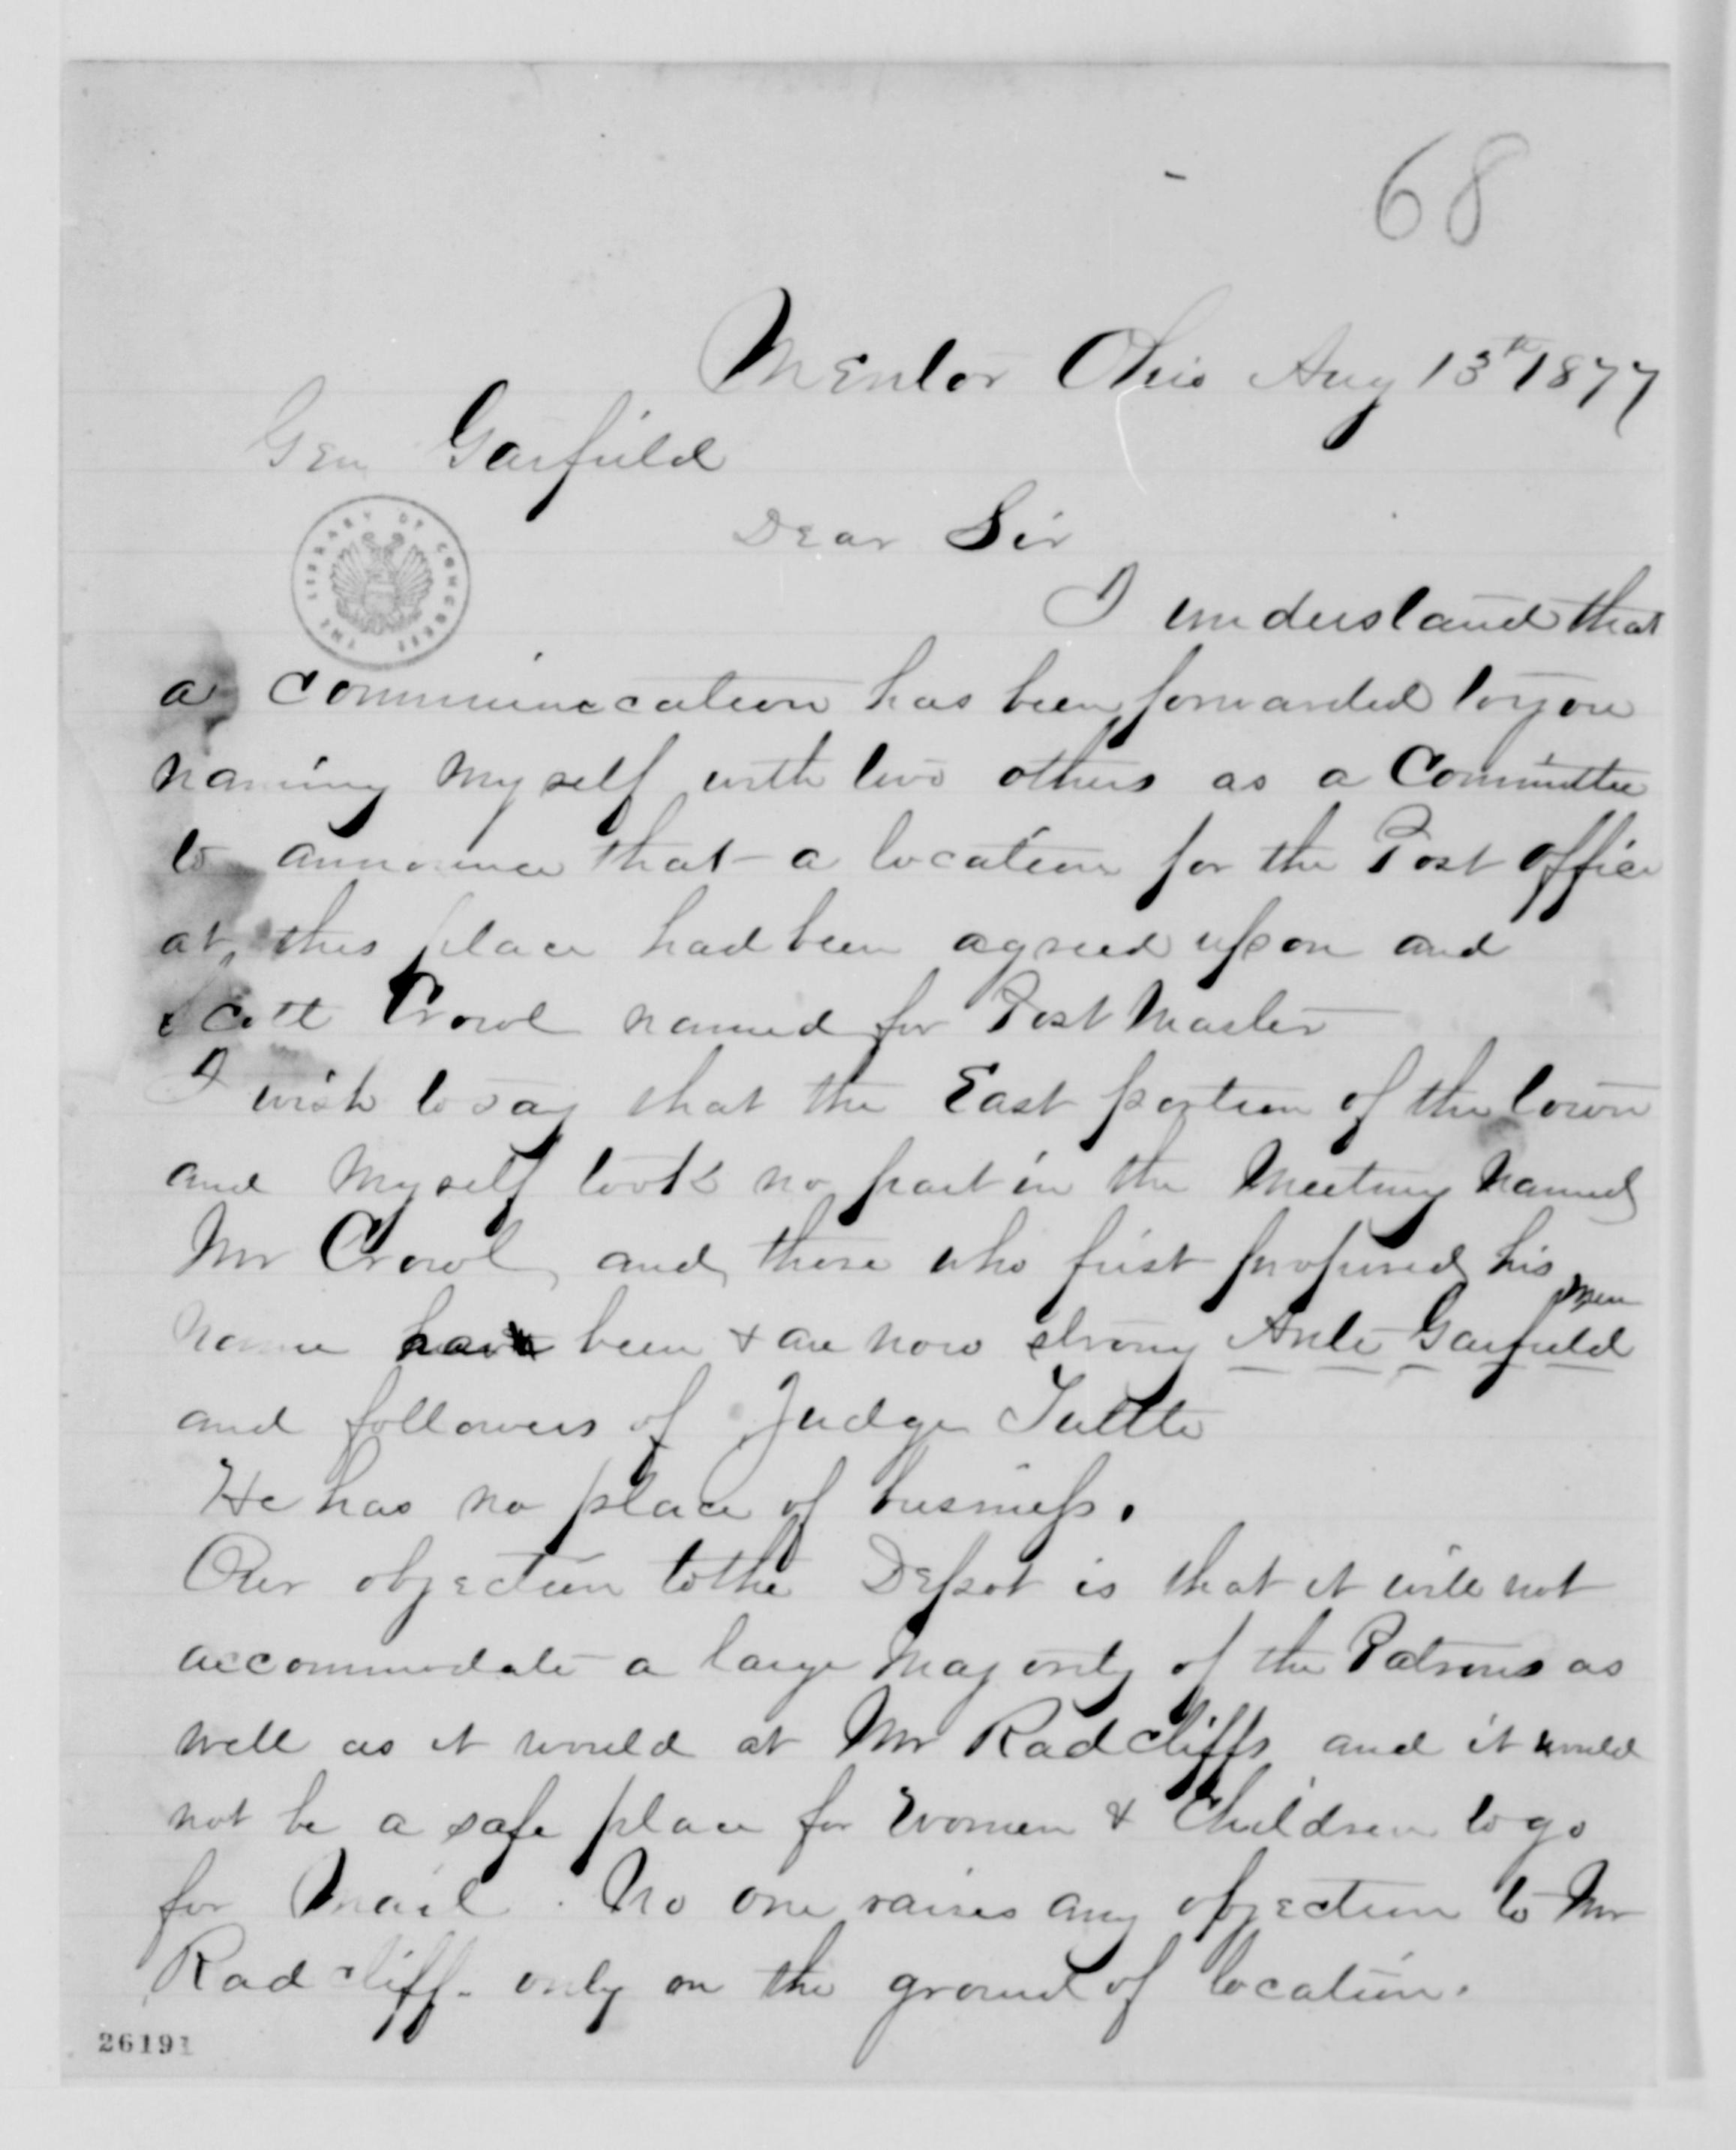 68
Mentor Ohio Aug 13th 1877
Gen Garfield
Dear Sir
THE LIBRARY OF CONGRESS
I understand that
a communiccation has been forwarded to you
naming myself with two others as a Committee
to announce that a location for the Post office
at this place had been agreed upon and
Scott Crowl named for Post Master
I wish to say that the East portion of the town
and myself took no part in the Meeting named
Mr Crowl and those who first proposed his
name have been & are now strong Anti-Garfield men
and followers of Judge Tuttle
He has no place of business.
Our objection to the Depot is that it will not
accommodate a large majority of the Patrons as
well as it would at Mr Radcliffs and it would
not be a safe place for women & Children to go
for Mail. No one raises any objection to Mr
Radcliff only on the ground of location.
26191